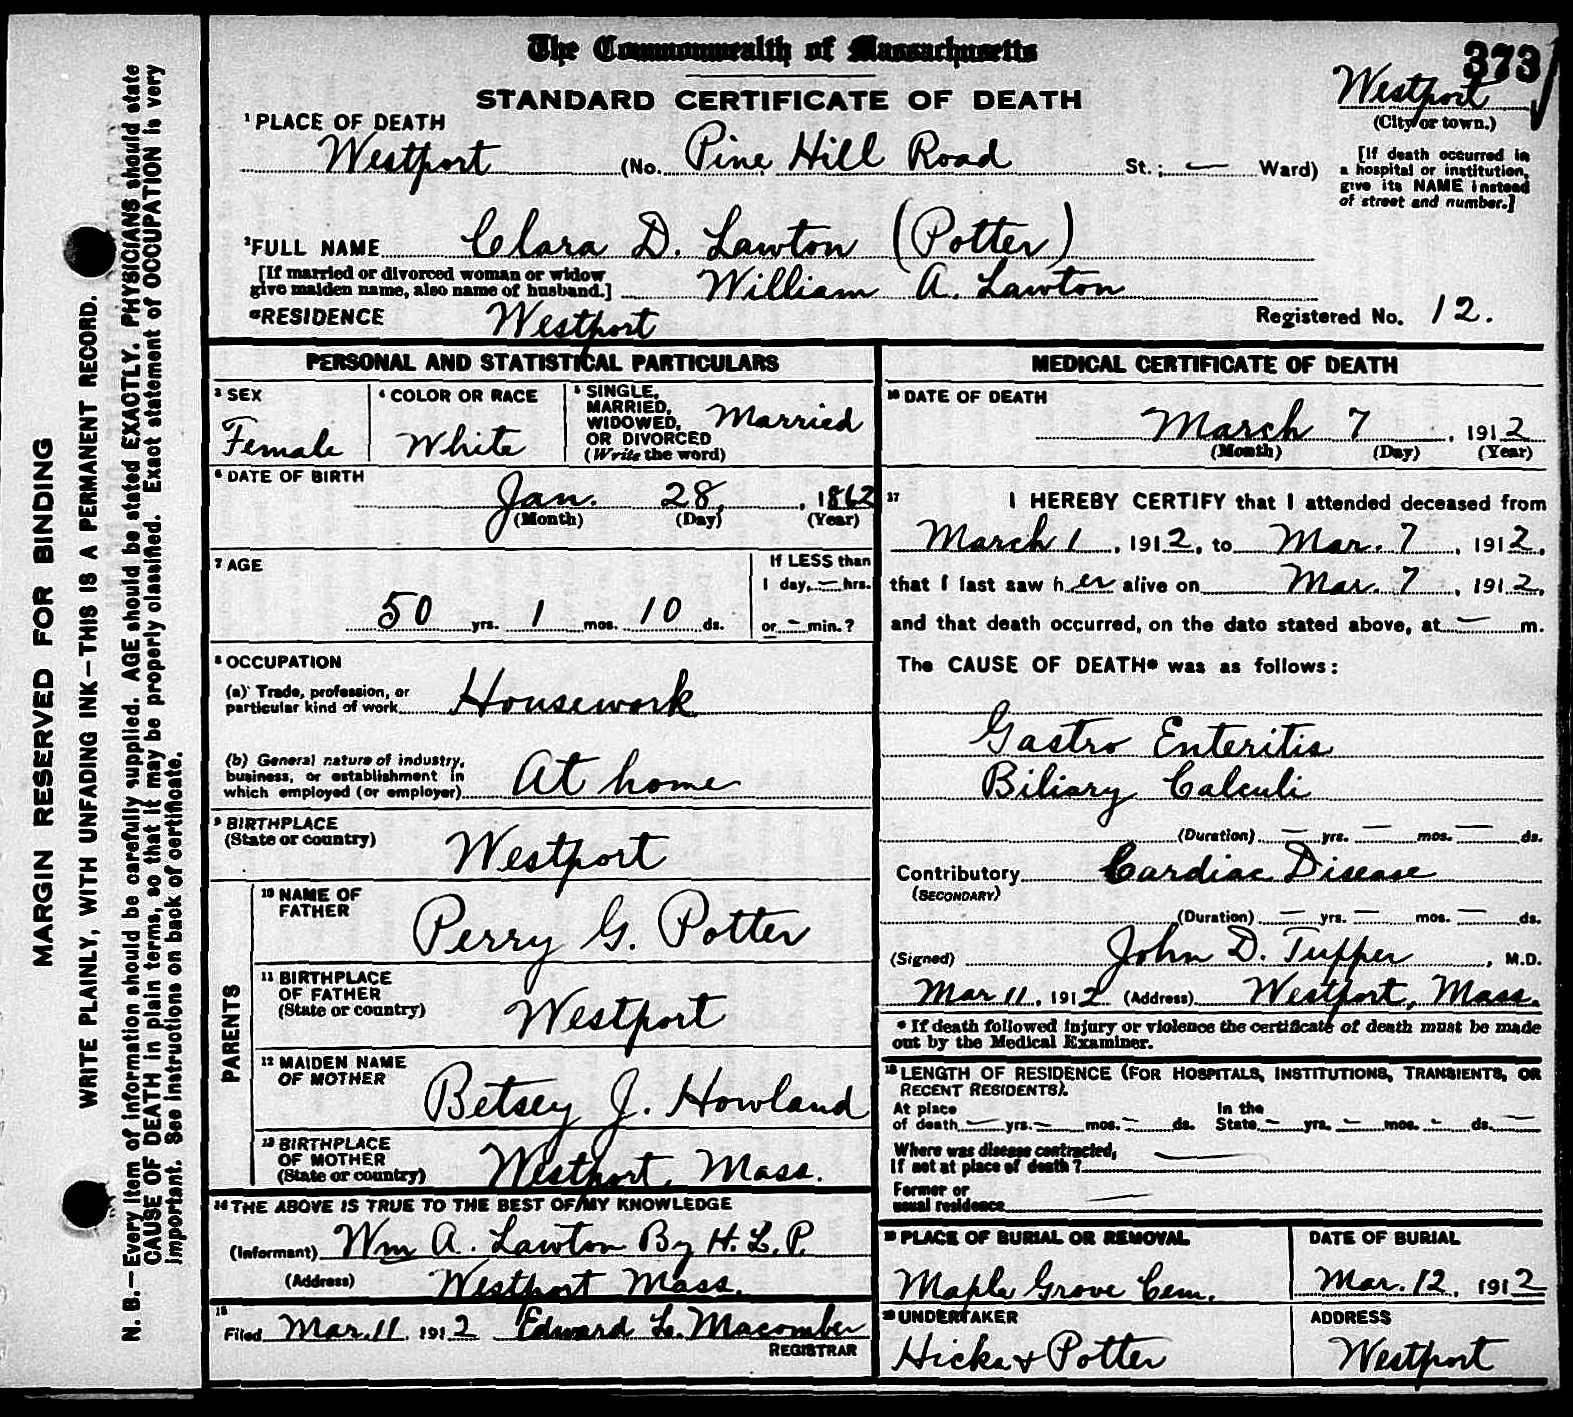 The Commonwealth of Massachusetts
373
STANDARD CERTIFICATE OF DEATH
Westport
(City or town.)
1 PLACE OF DEATH
Westport (No. Pine Hill Road St.; — Ward)
[If death occurred in
a hospital or institution,
give its NAME instead
of street and number.]
2 FULL NAME Clara D. Lawton (Potter)
[If married or divorced woman or widow
give maiden name, also name of husband.] William A. Lawton
RESIDENCE Westport
Registered No. 12.
PERSONAL AND STATISTICAL PARTICULARS
3 SEX
Female
4 COLOR OR RACE
White
5 SINGLE,
MARRIED,
WIDOWED,
OR DIVORCED
(Write the word)
Married
6 DATE OF BIRTH
Jan. 28, , 1862
(Month) (Day) (Year)
7 AGE
50 yrs. 1 mos. 10 ds.
If LESS than
1 day, — hrs.
or — min.?
8 OCCUPATION
(a) Trade, profession, or
particular kind of work Housework
(b) General nature of industry,
business, or establishment in
which employed (or employer) At home
9 BIRTHPLACE
(State or country)
Westport
PARENTS
10 NAME OF
FATHER
Perry G. Potter
11 BIRTHPLACE
OF FATHER
(State or country)
Westport
12 MAIDEN NAME
OF MOTHER
Betsey J. Howland
13 BIRTHPLACE
OF MOTHER
(State or country)
Westport, Mass.
14 THE ABOVE IS TRUE TO THE BEST OF MY KNOWLEDGE
(Informant) Wm A. Lawton By H. L. P.
(Address) Westport Mass.
15
Filed Mar. 11, 1912 Edward L. Macomber
REGISTRAR
MEDICAL CERTIFICATE OF DEATH
16 DATE OF DEATH
March 7 , 1912
(Month) (Day) (Year)
17 I HEREBY CERTIFY that I attended deceased from
March 1 , 1912, to Mar. 7 , 1912,
that I last saw her alive on Mar. 7 , 1912,
and that death occurred, on the date stated above, at — m.
The CAUSE OF DEATH* was as follows:
Gastro Enteritis
Biliary Calculi
(Duration) — yrs. — mos. — ds.
Contributory Cardiac Disease
(SECONDARY)
(Duration) — yrs. — mos. — ds.
(Signed) John D. Tupper , M.D.
Mar 11, 1912 (Address) Westport, Mass.
* If death followed injury or violence the certificate of death must be made
out by the Medical Examiner.
18 LENGTH OF RESIDENCE (FOR HOSPITALS, INSTITUTIONS, TRANSIENTS, OR
RECENT RESIDENTS).
At place
of death — yrs. — mos. — ds.
In the
State — yrs. — mos. — ds. —
Where was disease contracted,
If not at place of death? —
Former or
usual residence —
19 PLACE OF BURIAL OR REMOVAL
Maple Grove Cem.
DATE OF BURIAL
Mar. 12, 1912
20 UNDERTAKER
Hicks & Potter
ADDRESS
Westport
MARGIN RESERVED FOR BINDING
WRITE PLAINLY, WITH UNFADING INK—THIS IS A PERMANENT RECORD.
N. B.—Every item of information should be carefully supplied. AGE should be stated EXACTLY. PHYSICIANS should state
CAUSE OF DEATH in plain terms, so that it may be properly classified. Exact statement of OCCUPATION is very
important. See instructions on back of certificate.